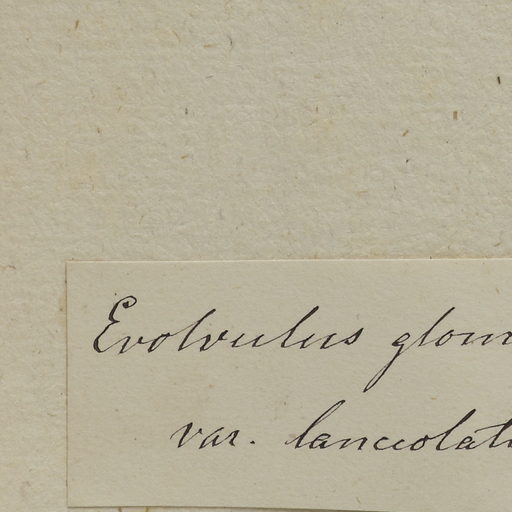 Evolvulus glom
var. lanceolat